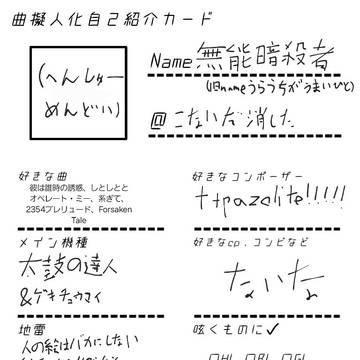 曲擬人化自己紹介カード
(へんしゅー
めんどい)
Name 無能暗殺者
(旧nameうらうちがうまいひと)
@ こないだ消した
好きな曲
彼は誰時の誘惑、しとしとと
オペレート・ミー、糸ぎて、
2354プレリュード、Forsaken
Tale
好きなコンポーザー
t+pazolite!!!!!
メイン機種
太鼓の達人
&ゲキチュウマイ
好きなcp.コンビなど
ないな
地雷
人の絵はバカにしない
呟くものに✓